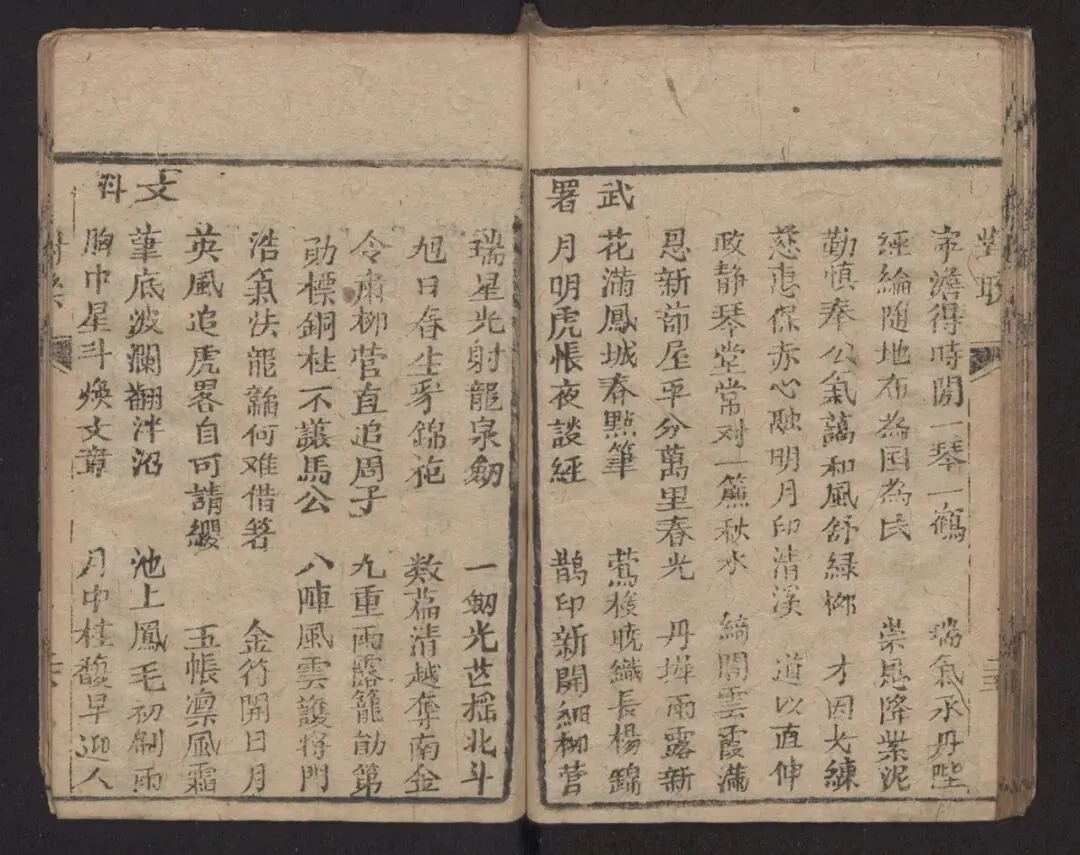 宇澹得時閒一琴一鶴 瑞氣承丹陛
經綸随地布為国為民 崇恩降紫泥
勤慎奉公氣藹和風舒緑柳 才因大練
慈恵保赤心融明月印清溪 道以直伸
政静琴堂常对一簾秋水 綺閣雲霞滿
恩新蔀屋平分萬里春光 丹墀雨露新
武署
花滿鳳城春點筆 鶯梭暁織長楊錦
月明虎帳夜談經 鵲印新開細柳營
瑞星光射龍泉劒 一劒光芒摇北斗
旭日春生豸錦袍 数菇清越奪南金
令肅柳营直追周子 九重雨露龍勛第
勛標銅柱不讓馬公 八陣風雲護将門
浩氣決龍韜何难借著 金符開日月
英風追虎畧自可請纓 玉帳凛風霜
文科
筆底波瀾翻泮沼 池上鳳毛初制雨
胸巾星斗煥文章 月中桂馥早迎人